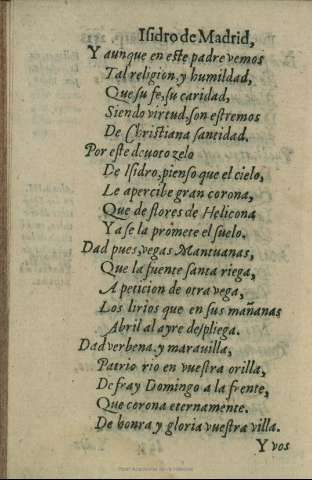 Isidro de Madrid,
Y aunque en este padre vemos
Tal religion, y humildad,
Que su fe, su caridad,
Siendo virtud, son estremos
De Christiana santidad.
Por este deuoto zelo
De Isidro, pienso que el cielo,
Le apercibe gran corona,
Que de flores de Helicona
Ya se la promete el suelo.
Dad pues, vegas Mantuanas,
Que la fuente santa riega,
A peticion de otra vega,
Los lirios que en sus mañanas
Abril al ayre despliega.
Dad verbena, y marauilla,
Patrio rio en vuestra orilla,
De fray Domingo a la frente,
Que corona eternamente.
De honra y gloria vuestra villa.
Y vos